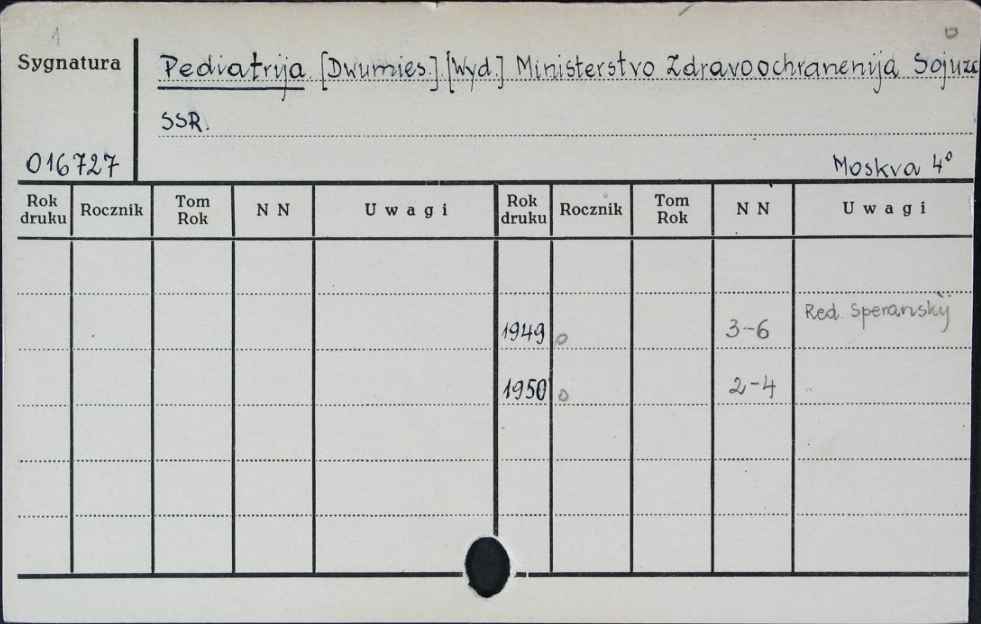 1
Sygnatura
Pediatrija [Dwumies.] [Wyd.] Ministerstvo Zdravoochranenija Sojuza
SSR.
016727
Moskva 4°
Rok druku Rocznik Tom Rok NN Uwagi Rok druku Rocznik Tom Rok NN Uwagi
1949 o 3-6 Red. Speranskij
1950 o 2-4